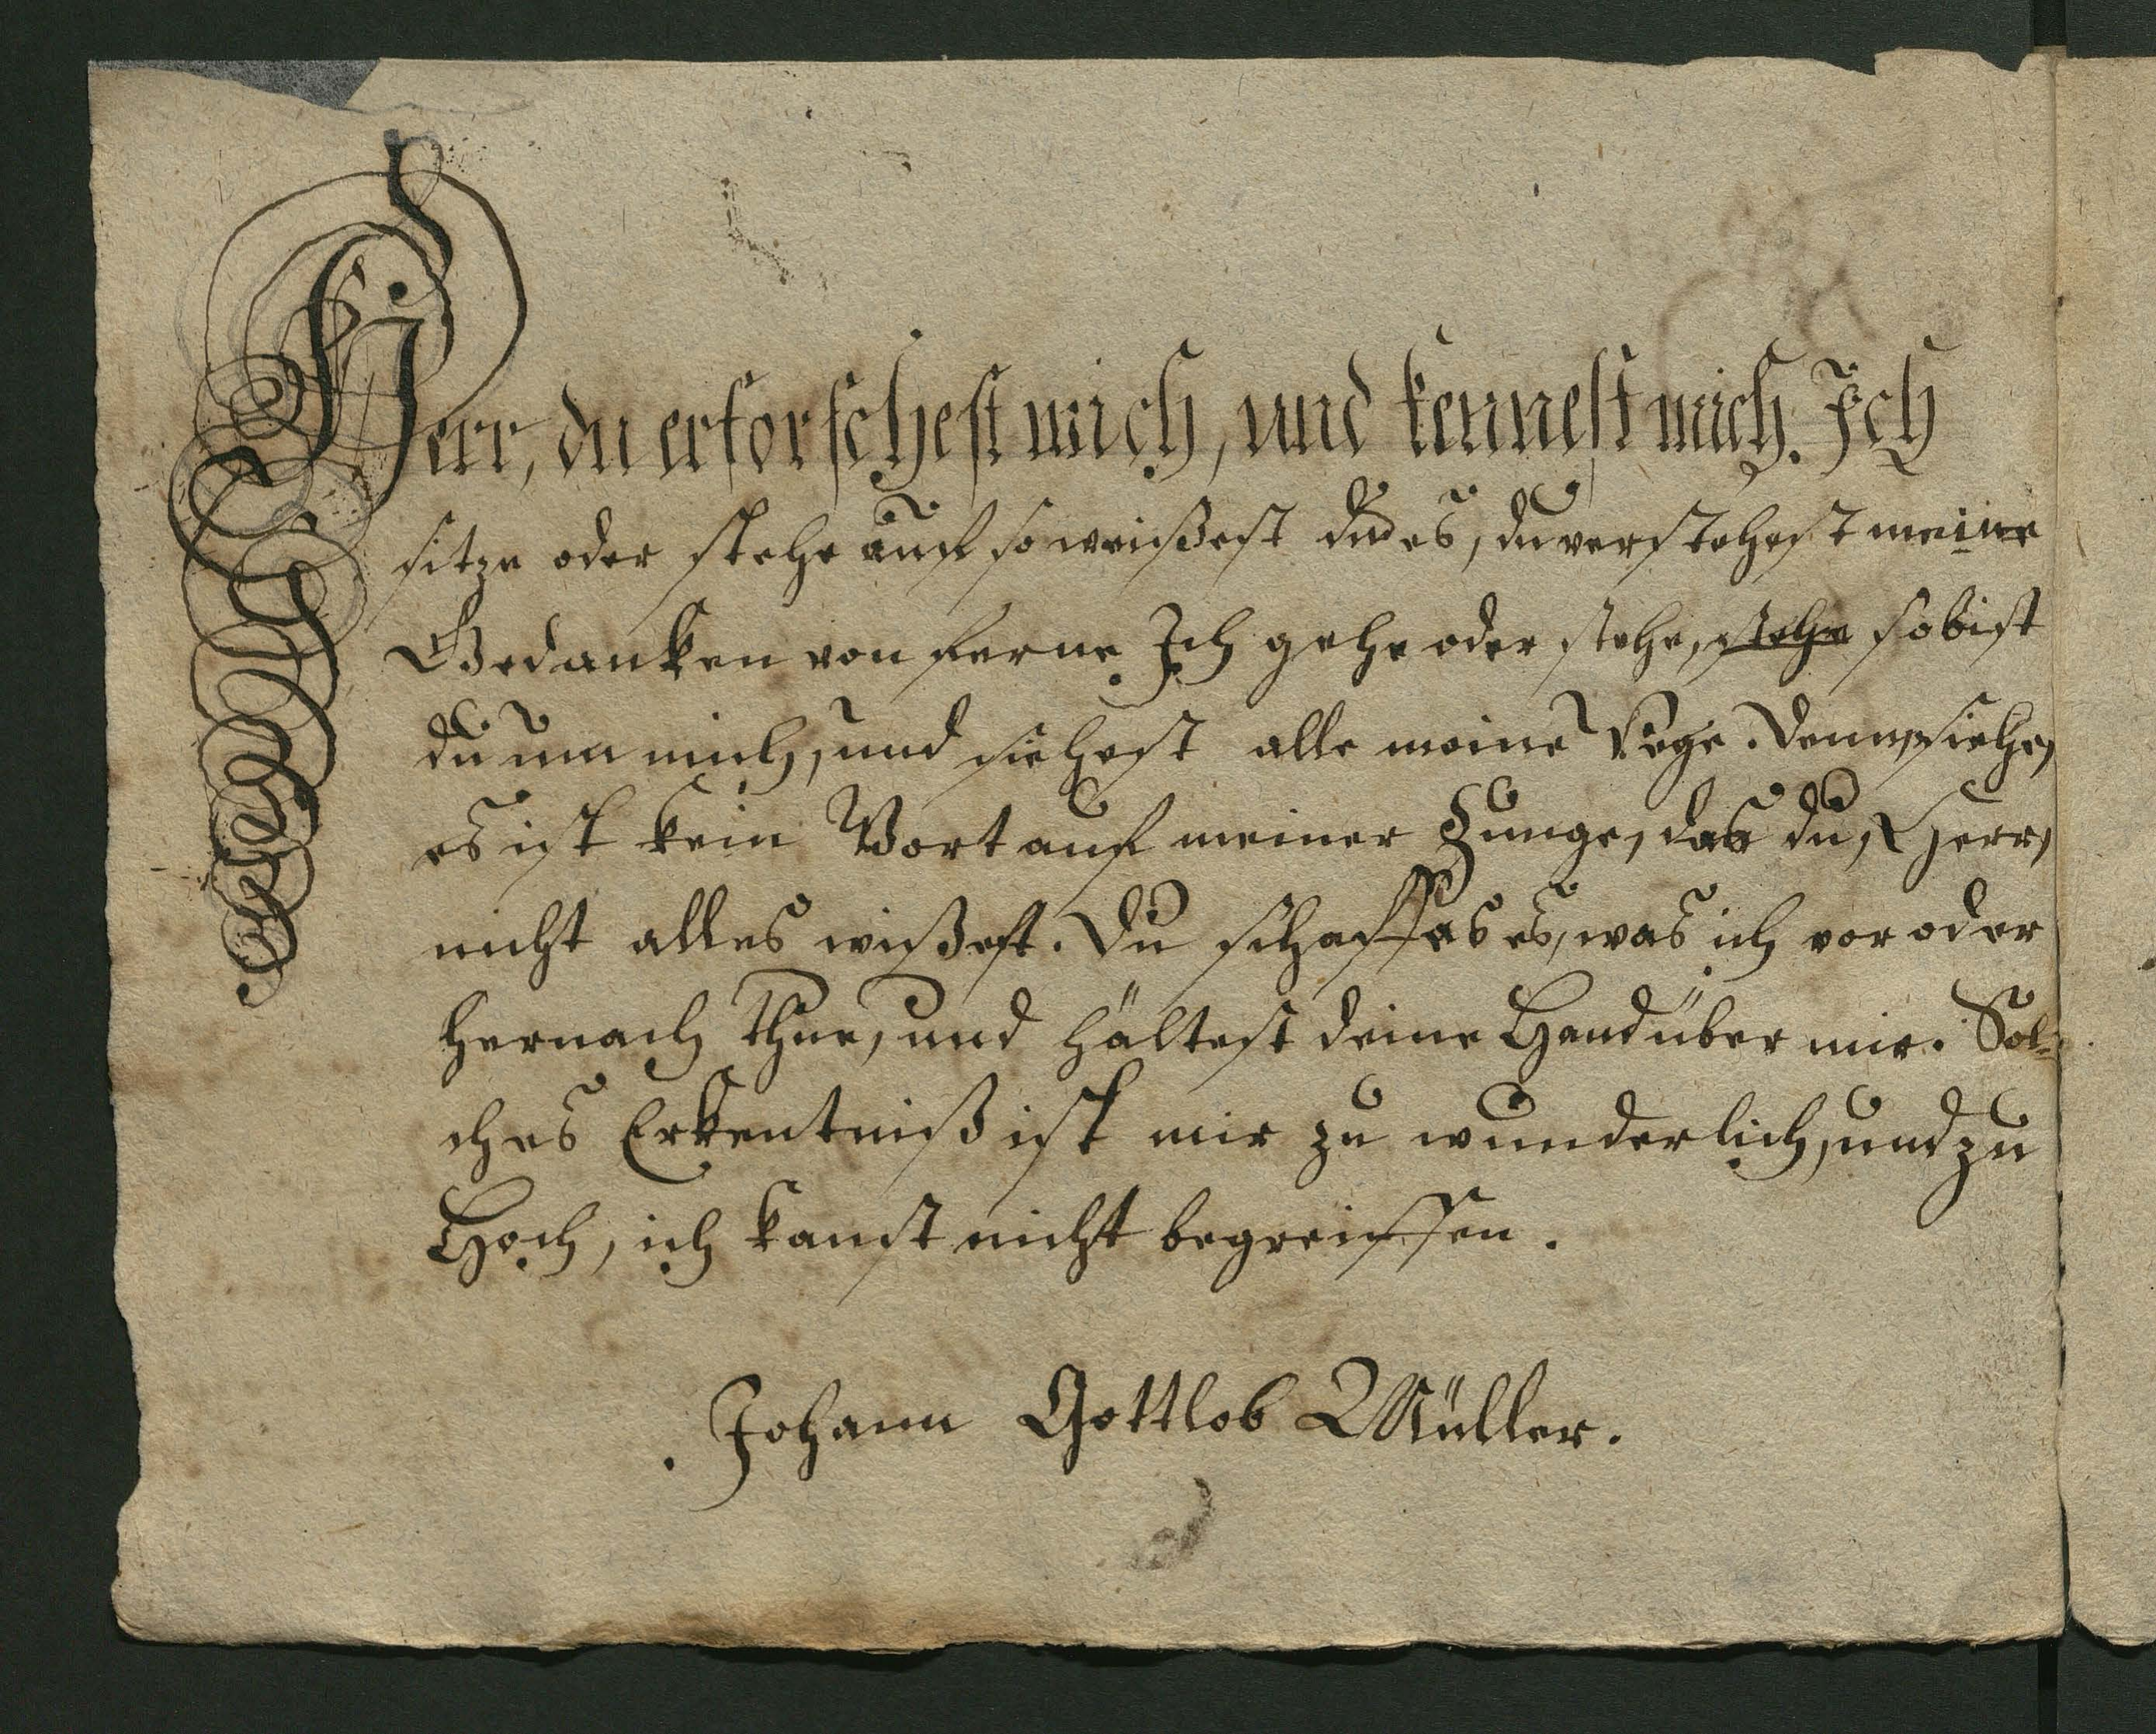 Herr, du erforschest mich, und kennest mich. Ich
sitze oder stehe auf so weißest du es, du verstehest meine
Gedanken von ferne Ich gehe oder stehe, stehe so bist
du um mich, und siehest alle meine Wege. Denn, siehe,
es ist kein Wort auf meiner Zunge, das du, Herr,
nicht alles wißest. Du schaffes es, was ich vor oder
hernach thue, und hältest deine Hand über mir. Sol-
ches Erkentniß ist mir zu wunderlich, und zu
Hoch, ich kanst nicht begreiffen.
Johann Gottlob Müller.